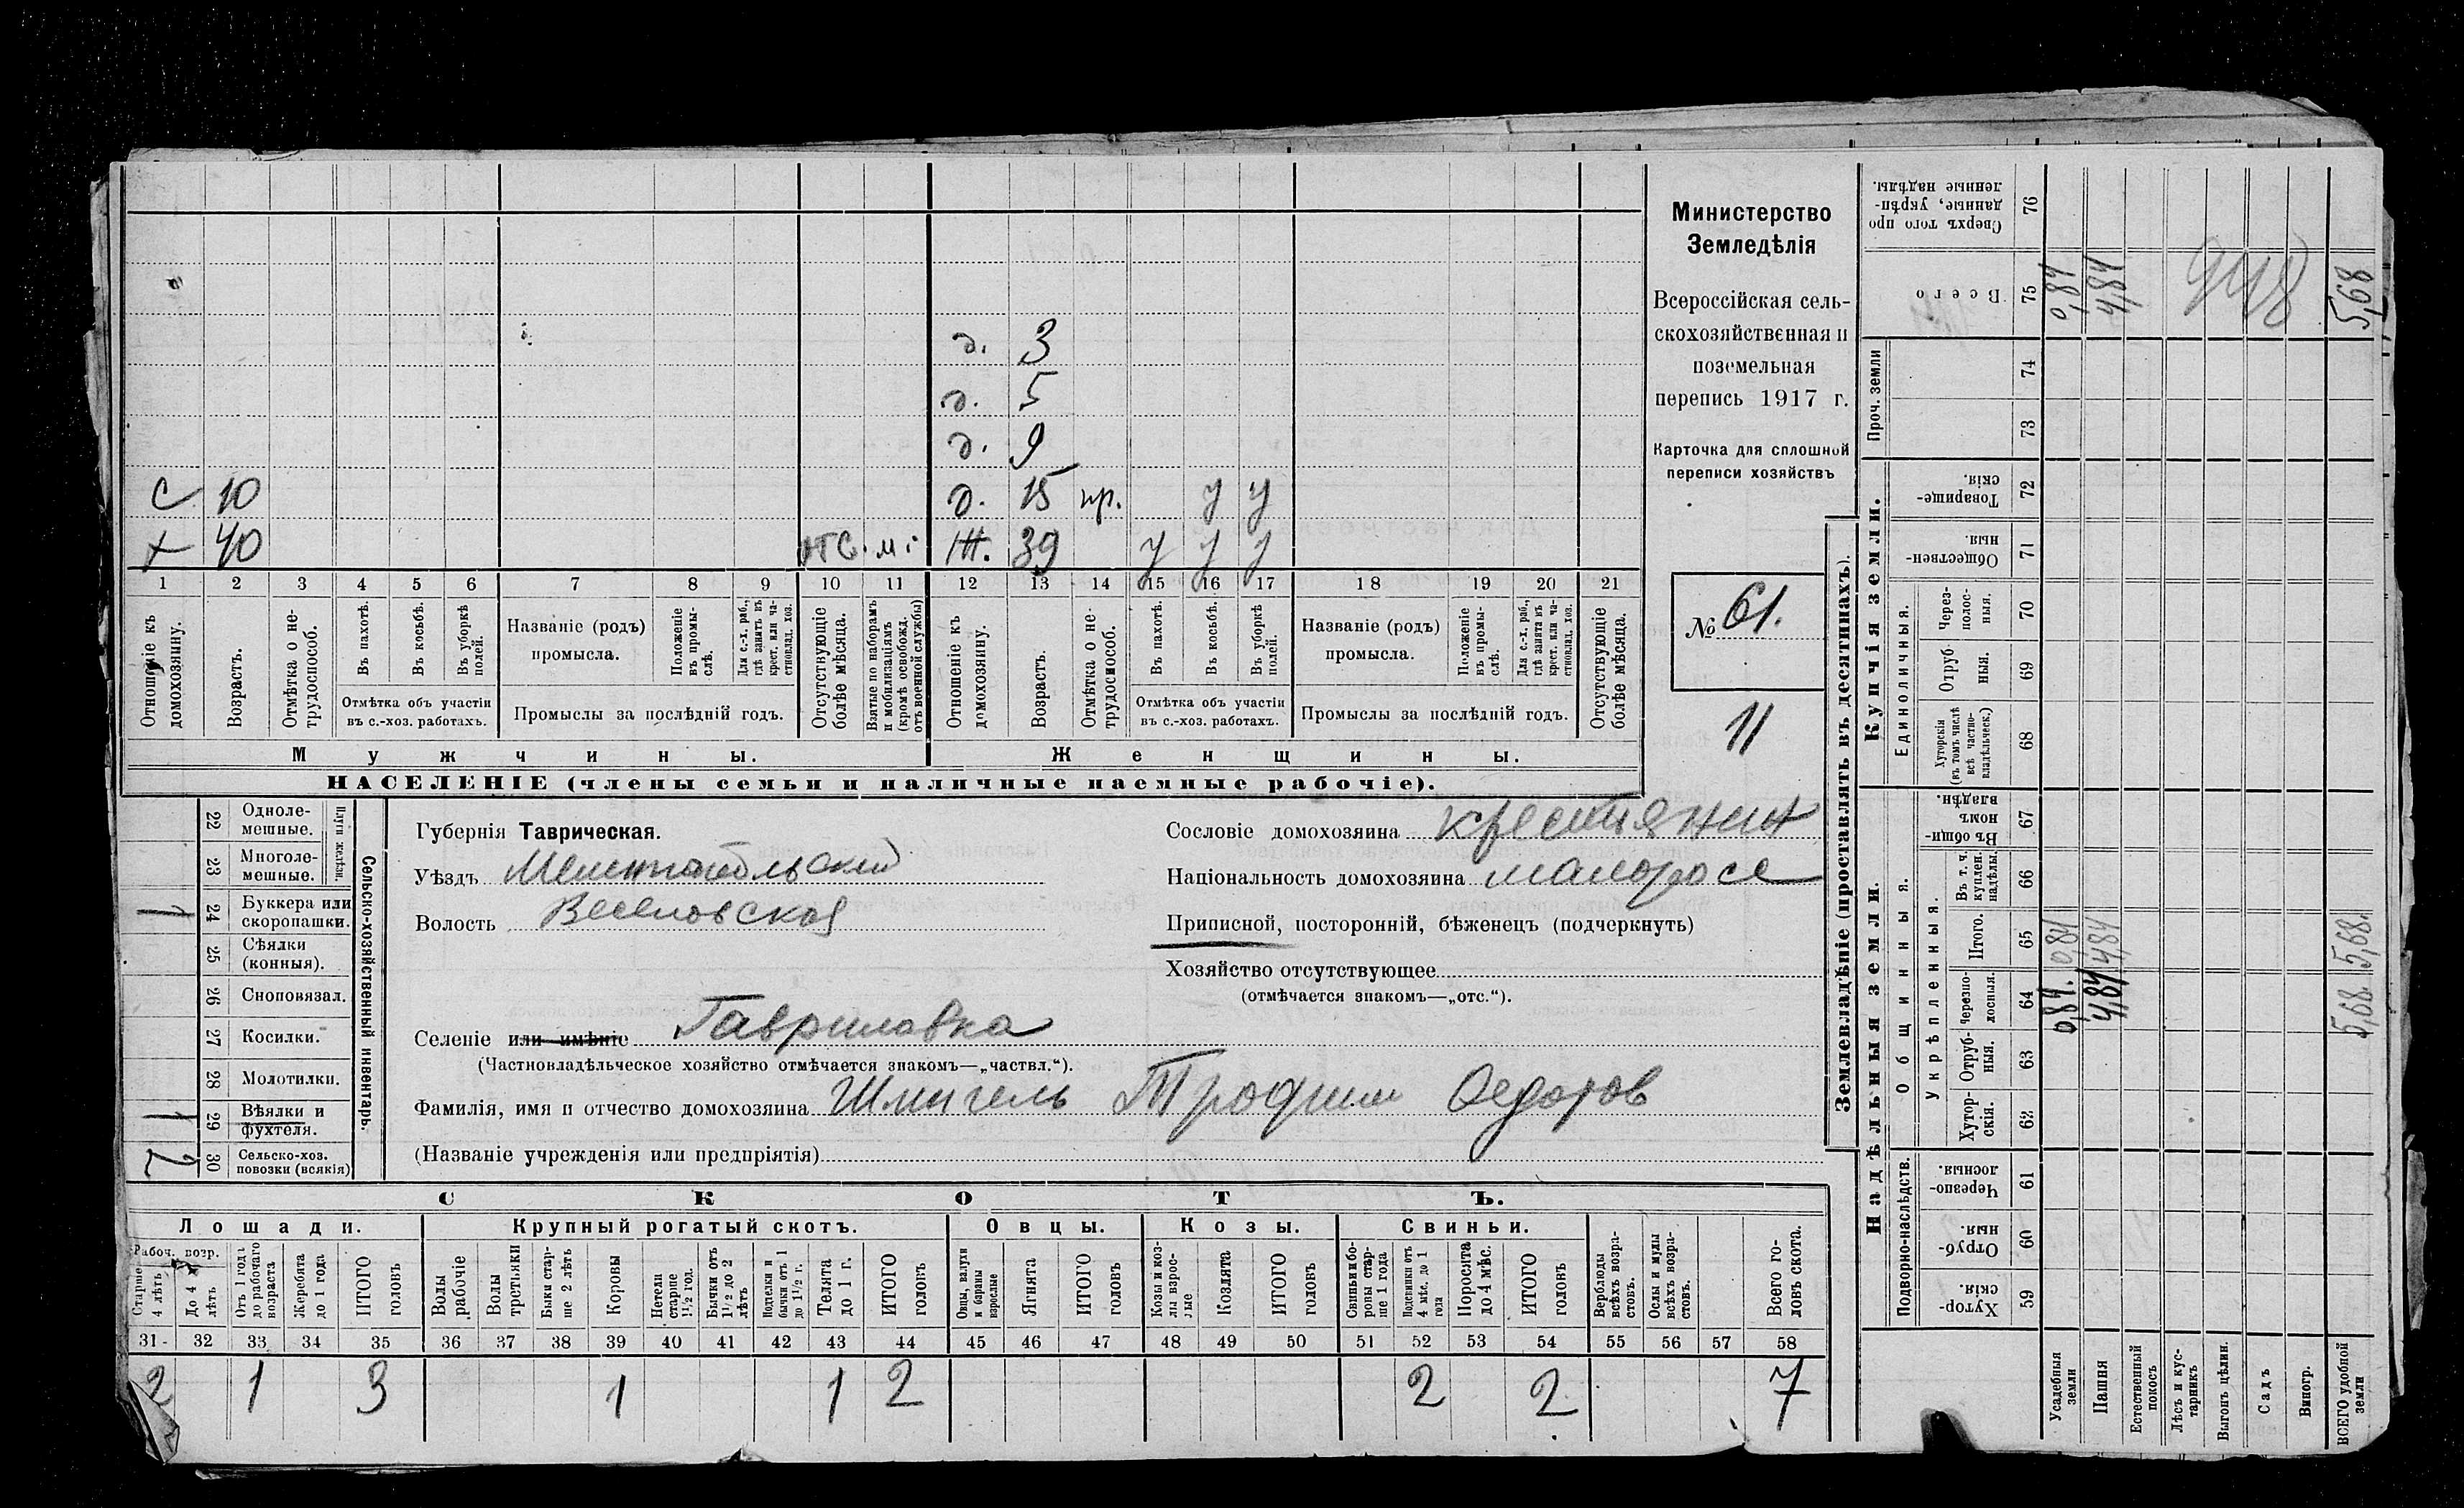 Министерство
Земледѣлія
Всероссійская сель-
скохозяйственная и
поземельная
перепись 1917 г.
Карточка для сплошной
переписи хозяйствъ
№ 61.
11
д. 3
д. 5
д. 9
с 10 д. 15 пр. у у
х 40 отс. м. ж. 39 у у у
1 2 3 4 5 6 7 8 9 10 11 12 13 14 15 16 17 18 19 20 21
Отношеніе къ домохозяину.
Возрастъ.
Отмѣтка о не-трудоспособ.
Въ пахотѣ.
Въ косьбѣ.
Въ уборкѣ полей.
Отмѣтка объ участіи въ с.-хоз. работахъ.
Названіе (родъ) промысла.
Положеніе въ промы-слѣ.
Для с.-х. раб., гдѣ занятъ въ крест. или ча-стновлад. хоз.
Промыслы за послѣдній годъ.
Отсутствующіе болѣе мѣсяца.
Взятые по наборамъ и мобилизаціямъ (кромѣ освобожд. отъ военной службы)
Отношеніе къ домохозяину.
Возрастъ.
Отмѣтка о не-трудоспособ.
Въ пахотѣ.
Въ косьбѣ.
Въ уборкѣ полей.
Отмѣтка объ участіи въ с.-хоз. работахъ.
Названіе (родъ) промысла.
Положеніе въ промы-слѣ.
Для с.-х. раб., гдѣ занята въ крест. или ча-стновлад. хоз.
Промыслы за послѣдній годъ.
Отсутствующіе болѣе мѣсяца.
Мужчины. Женщины.
НАСЕЛЕНІЕ (члены семьи и наличные наемные рабочіе).
Сельско-хозяйственный инвентарь.
Плуги желѣзн.
22 Одноле-мешные.
23 Многоле-мешные.
24 Буккера или скоропашки. 1
25 Сѣялки (конныя).
26 Сноповязал.
27 Косилки.
28 Молотилки.
29 Вѣялки и фухтеля. 1
30 Сельско-хоз. повозки (всякія) 2
Губернія Таврическая.
Уѣздъ Мелитопольский
Волость Веселовская
Селеніе или имѣніе Гавриловка
(Частновладѣльческое хозяйство отмѣчается знакомъ—„частвл.“).
Фамилія, имя и отчество домохозяина Шмигель Трофим Федотов
(Названіе учрежденія или предпріятія)
Сословіе домохозяина крестиянин
Національность домохозяина малоросс
Приписной, посторонній, бѣженец (подчеркнуть)
Хозяйство отсутствующее
(отмѣчается знакомъ—„отс.“).
СКОТЪ.
Лошади. Крупный рогатый скотъ. Овцы. Козы. Свиньи.
Рабоч. возр.
Старше 4 лѣтъ
До 4 лѣтъ
Отъ 1 года до рабочаго возраста
Жеребята до 1 года
ИТОГО головъ
Волы рабочіе
Волы третьяки
Быки стар-ше 2 лѣтъ
Коровы
Нетели старше 1½ год.
Бычки отъ 1½ до 2 лѣтъ
Телята до 1 г.
ИТОГО головъ
Овцы, валухи и бараны взрослые
Ягнята
ИТОГО головъ
Козы и коз-лы взрос-лые
Козлята
ИТОГО головъ
Свиньи и бо-ровы стар-ше 1 года
Подсвинки отъ 4 мѣс. до 1 года
Поросята до 4 мѣс.
ИТОГО головъ
Верблюды всѣхъ возра-стовъ.
Ослы и мулы всѣхъ возра-стовъ.
Всего го-ловъ скота.
31 32 33 34 35 36 37 38 39 40 41 42 43 44 45 46 47 48 49 50 51 52 53 54 55 56 57 58
2 1 3 1 1 2 2 2 7
Землевладѣніе (проставлять въ десятинахъ).
Надѣльныя земли. Купчія земли. Проч. земли
Подворно-наслѣдств. Общинныя. Укрѣпленныя. Единоличныя.
Хутор-скія. 59
Отруб-ныя. 60
Черезпо-лосныя. 61
Хутор-скія. 62
Отруб-ныя. 63
Черезпо-лосныя. 64
Итого. 65
Въ т. ч. куплен. надѣлы. 66
Въ общи-номъ владѣн. 67
Хуторскія (въ томъ числѣ всѣ частно-владѣльческ.) 68
Отруб-ныя. 69
Через-полос-ныя. 70
Обществен-ныя. 71
Товарище-скія. 72
73
74
Всего 75
Сверхъ того про данные, укрѣп-ленные надѣлы. 76
Усадебныя земли 0,84. 0,84 0,84
Пашня 4,84 4,84 4,84
Естественный покосъ
Лѣсъ и кус-тарникъ
Выгонъ цѣлин.
Садъ
Виногр.
ВСЕГО удобной земли 5,68. 5,68. 5,68